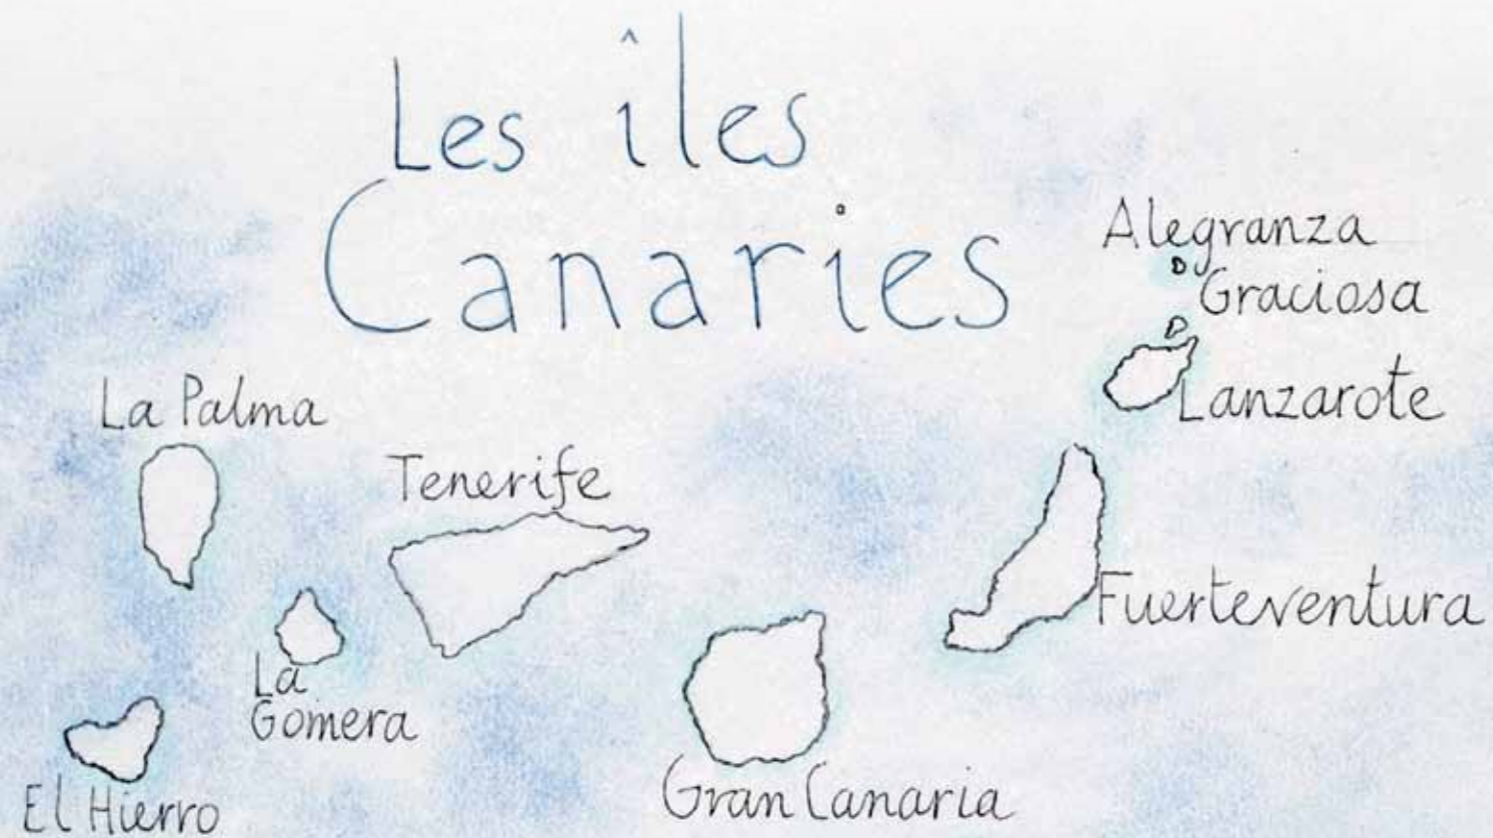 Les îles
Canaries
Alegranza
Graciosa
Lanzarote
La Palma
Tenerife
Fuerteventura
La
Gomera
El Hierro
Gran Canaria